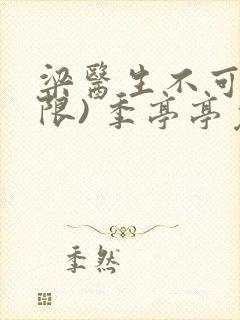 梁醫生不可
限) 季亭亭
季然